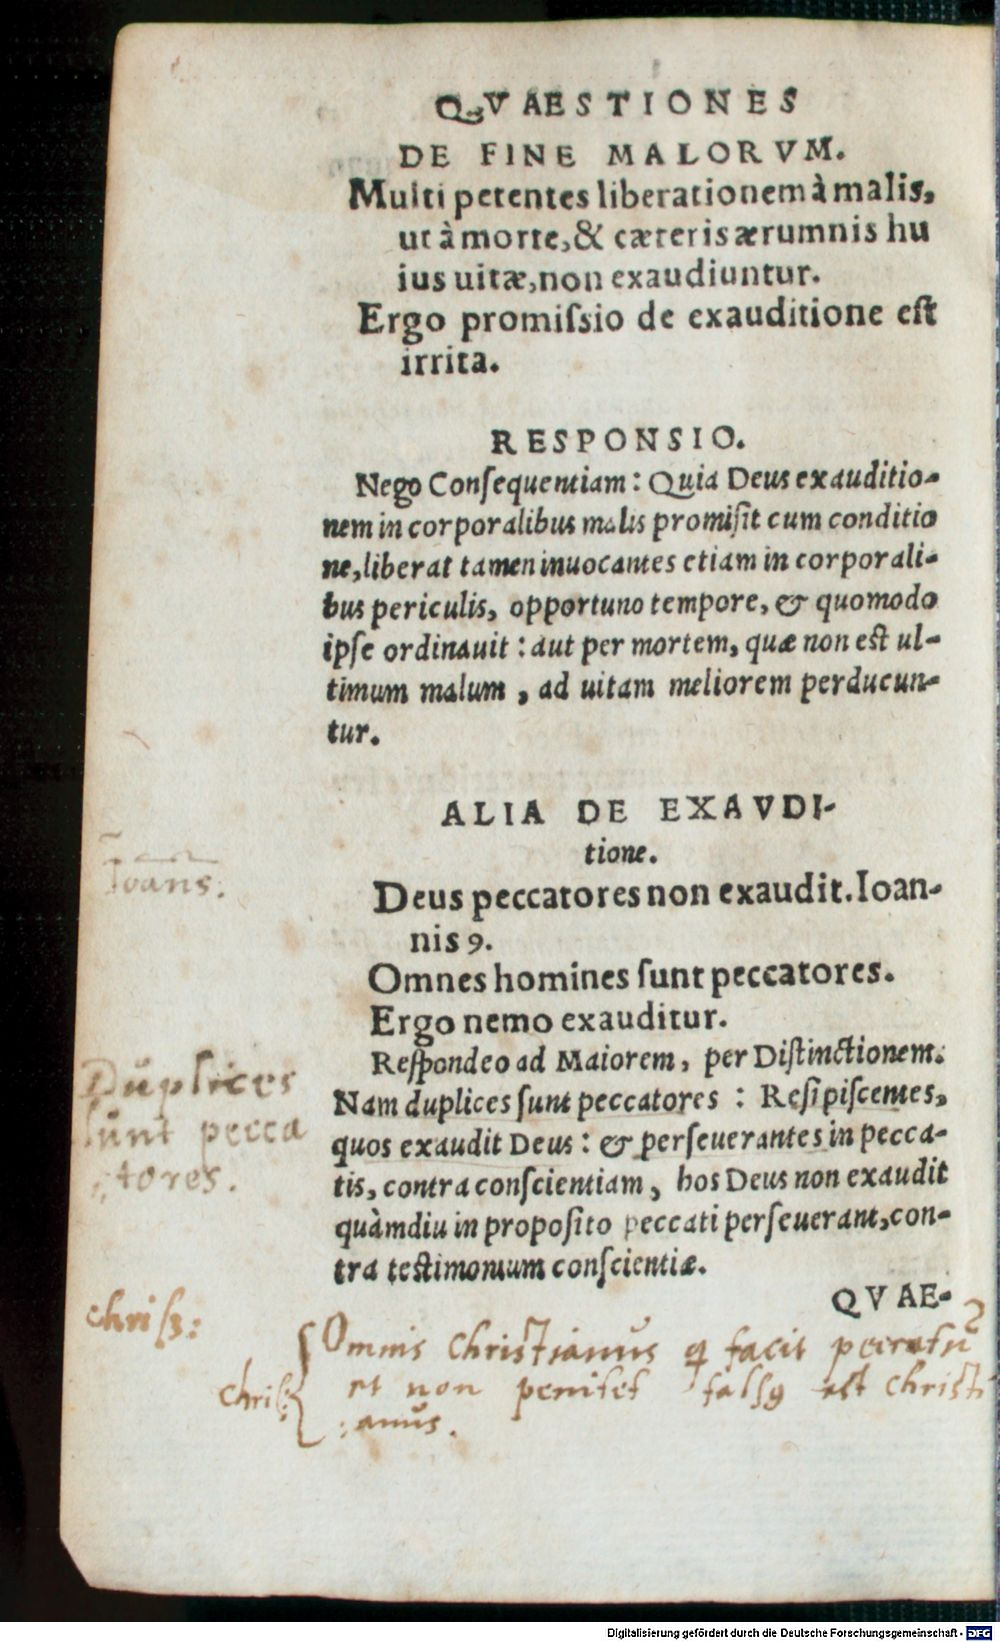 QVAESTIONES
DE FINE MALORVM.
Multi petentes liberationem à malis,
ut à morte, & cæteris ærumnis hu
ius uitæ, non exaudiuntur.
Ergo promiſsio de exauditione eſt
irrita.
RESPONSIO.
Nego Conſequentiam: Quia Deus exauditio-
nem in corporalibus malis promiſit cum conditio
ne, liberat tamen inuocantes etiam in corporali-
bus periculis, opportuno tempore, & quomodo
ipſe ordinauit: aut per mortem, quæ non eſt ul-
timum malum, ad uitam meliorem perducun-
tur.
ALIA DE EXAVDI-
tione.
Ioans:
Deus peccatores non exaudit. Ioan-
nis 9.
Omnes homines ſunt peccatores.
Ergo nemo exauditur.
Reſpondeo ad Maiorem, per Diſtinctionem.
Nam duplices ſunt peccatores: Reſipiſcentes,
quos exaudit Deus: & perſeuerantes in pecca-
tis, contra conſcientiam, hos Deus non exaudit
quàmdiu in propoſito peccati perſeuerant, con-
tra teſtimonium conſcientiæ.
Duplices
ſunt pecca
tores.
QVAE-
chriſz:
Omnis Chriſtianus q facit peccatū
Chriſ: et non penitet falſꝯ est Chriſti
:anus.